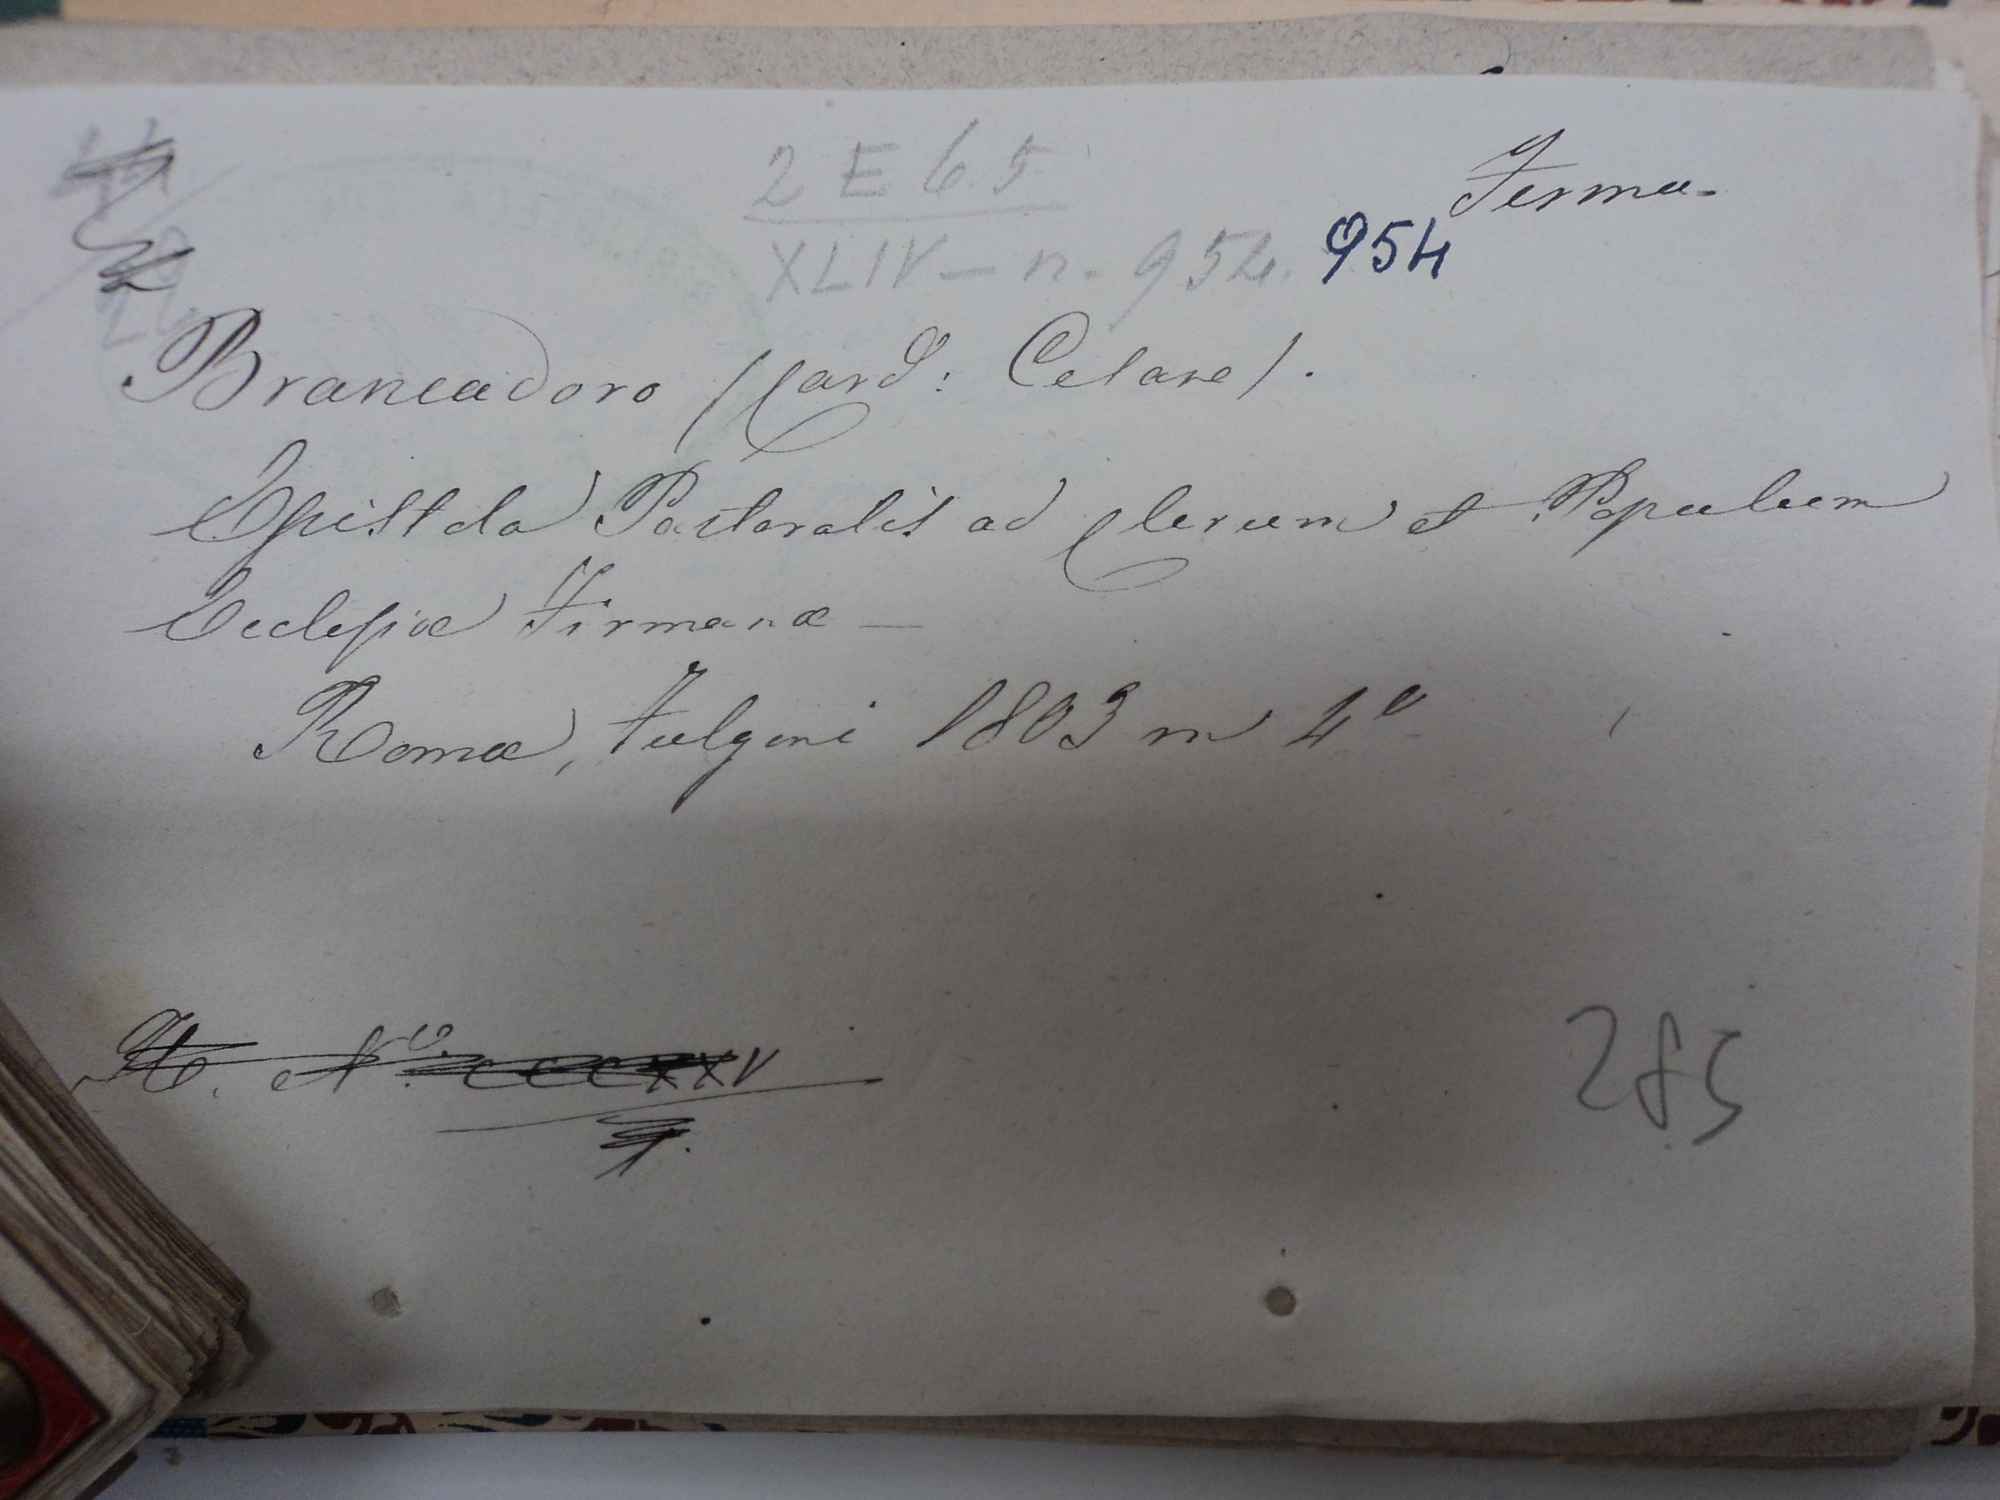 2 E 6.5
Fermo.
XLIV - n. 954. 954
Brancadoro (Card: Cesare).
Epistola Pastoralis ad Clerum et Populum
Ecclesiæ Firmanæ —
Romæ, Fulgoni 1803 in 4º
N.º CCCXXV
285